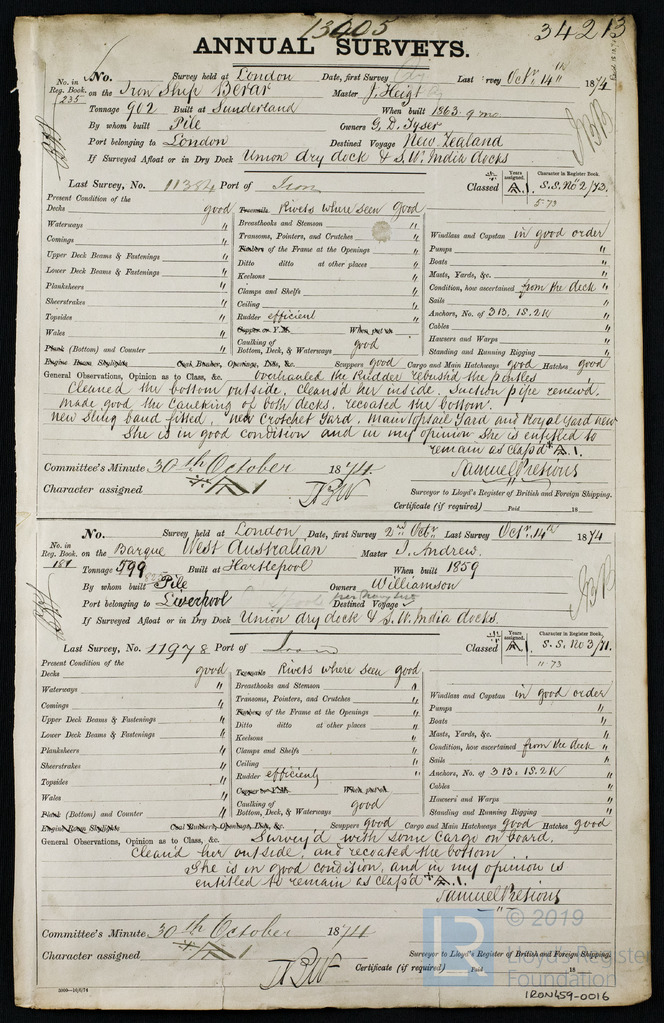 13005
34213
ANNUAL SURVEYS.
No. in Reg. Book. 235
No. Survey held at London Date, first Survey Last Survey Octr. 14th 1874
on the Iron Ship Berar Master J. Height
Tonnage 902 Built at Sunderland When built 1863. 9 mo.
By whom built Pile Owners G. D. Tyser
Port belonging to London Destined Voyage New Zealand
If Surveyed Afloat or in Dry Dock Union dry dock & S. W. India docks
Last Survey, No. 11384 Port of Iron Classed
Years assigned.
A.1.
Character in Register Book.
S.S. No 2/73.
5.73
Present Condition of the
Decks good
Waterways "
Comings "
Upper Deck Beams & Fastenings "
Lower Deck Beams & Fastenings "
Planksheers "
Sheerstrakes "
Topsides "
Wales "
Plank (Bottom) and Counter "
Engine Room Skylights
Treenails Rivets where seen good
Breasthooks and Stemson "
Transoms, Pointers, and Crutches "
Timbers of the Frame at the Openings "
Ditto ditto at other places "
Keelsons "
Clamps and Shelfs "
Ceiling "
Rudder efficient "
Copper or Y.M. When put on
Caulking of Bottom, Deck, & Waterways good
Windlass and Capstan in good order
Pumps "
Boats "
Masts, Yards, &c. "
Condition, how ascertained from the deck
Sails "
Anchors, No. of 3 B. 1 S. 2 K "
Cables "
Hawsers and Warps "
Standing and Running Rigging "
Coal Bunker, Openings, Lids, &c. Scuppers good Cargo and Main Hatchways good Hatches good
General Observations, Opinion as to Class, &c. Overhauled the Rudder rebush'd the pintles
Cleaned the bottom outside, cleans'd her inside. Suction pipe renew'd.
Made good the caulking of both decks, recoated the bottom.
New Sling band fitted, New Crotchet Yard, Main Topsail Yard and Royal Yard new
She is in good condition and in my opinion she is entitled to
remain as class'd A.1.
Samuel Pretious
Committee's Minute 30th October 1874
Character assigned A 1
Surveyor to Lloyd's Register of British and Foreign Shipping.
Certificate (if required) Paid 18
No. in Reg. Book. 181
No. Survey held at London Date, first Survey 2nd Octr. Last Survey Octr. 14th 1874
on the Barque West Australian Master J. Andrew.
Tonnage 599 Built at Hartlepool When built 1859
By whom built Pile Owners Williamson
Port belonging to Liverpool Destined Voyage
If Surveyed Afloat or in Dry Dock Union dry dock & S. W. India docks.
Last Survey, No. 11978 Port of Iron Classed
Years assigned.
A.1.
Character in Register Book.
S.S. No 3/71.
11.73
Present Condition of the
Decks good
Waterways "
Comings "
Upper Deck Beams & Fastenings "
Lower Deck Beams & Fastenings "
Planksheers "
Sheerstrakes "
Topsides "
Wales "
Plank (Bottom) and Counter "
Engine Room Skylights
Treenails Rivets where seen good
Breasthooks and Stemson "
Transoms, Pointers, and Crutches "
Timbers of the Frame at the Openings "
Ditto ditto at other places "
Keelsons "
Clamps and Shelfs "
Ceiling "
Rudder efficient "
Copper or Y.M. When put on
Caulking of Bottom, Deck, & Waterways good
Windlass and Capstan in good order
Pumps "
Boats "
Masts, Yards, &c. "
Condition, how ascertained from the deck
Sails "
Anchors, No. of 3 B. 1 S. 2 K "
Cables "
Hawsers and Warps "
Standing and Running Rigging "
Coal Bunkers, Openings, Lids, &c. Scuppers good Cargo and Main Hatchways good Hatches good
General Observations, Opinion as to Class, &c. Survey'd with some cargo on board.
Clean'd her outside, and recoated the bottom
She is in good condition, and in my opinion is
entitled to remain as class'd A.1.
Samuel Pretious
Committee's Minute 30th October 1874
Character assigned A 1
Surveyor to Lloyd's Register of British and Foreign Shipping.
Certificate (if required) Paid 18
2000—16/6/74
© 2019
Lloyd's Register
Foundation
LR
IRON459-0016